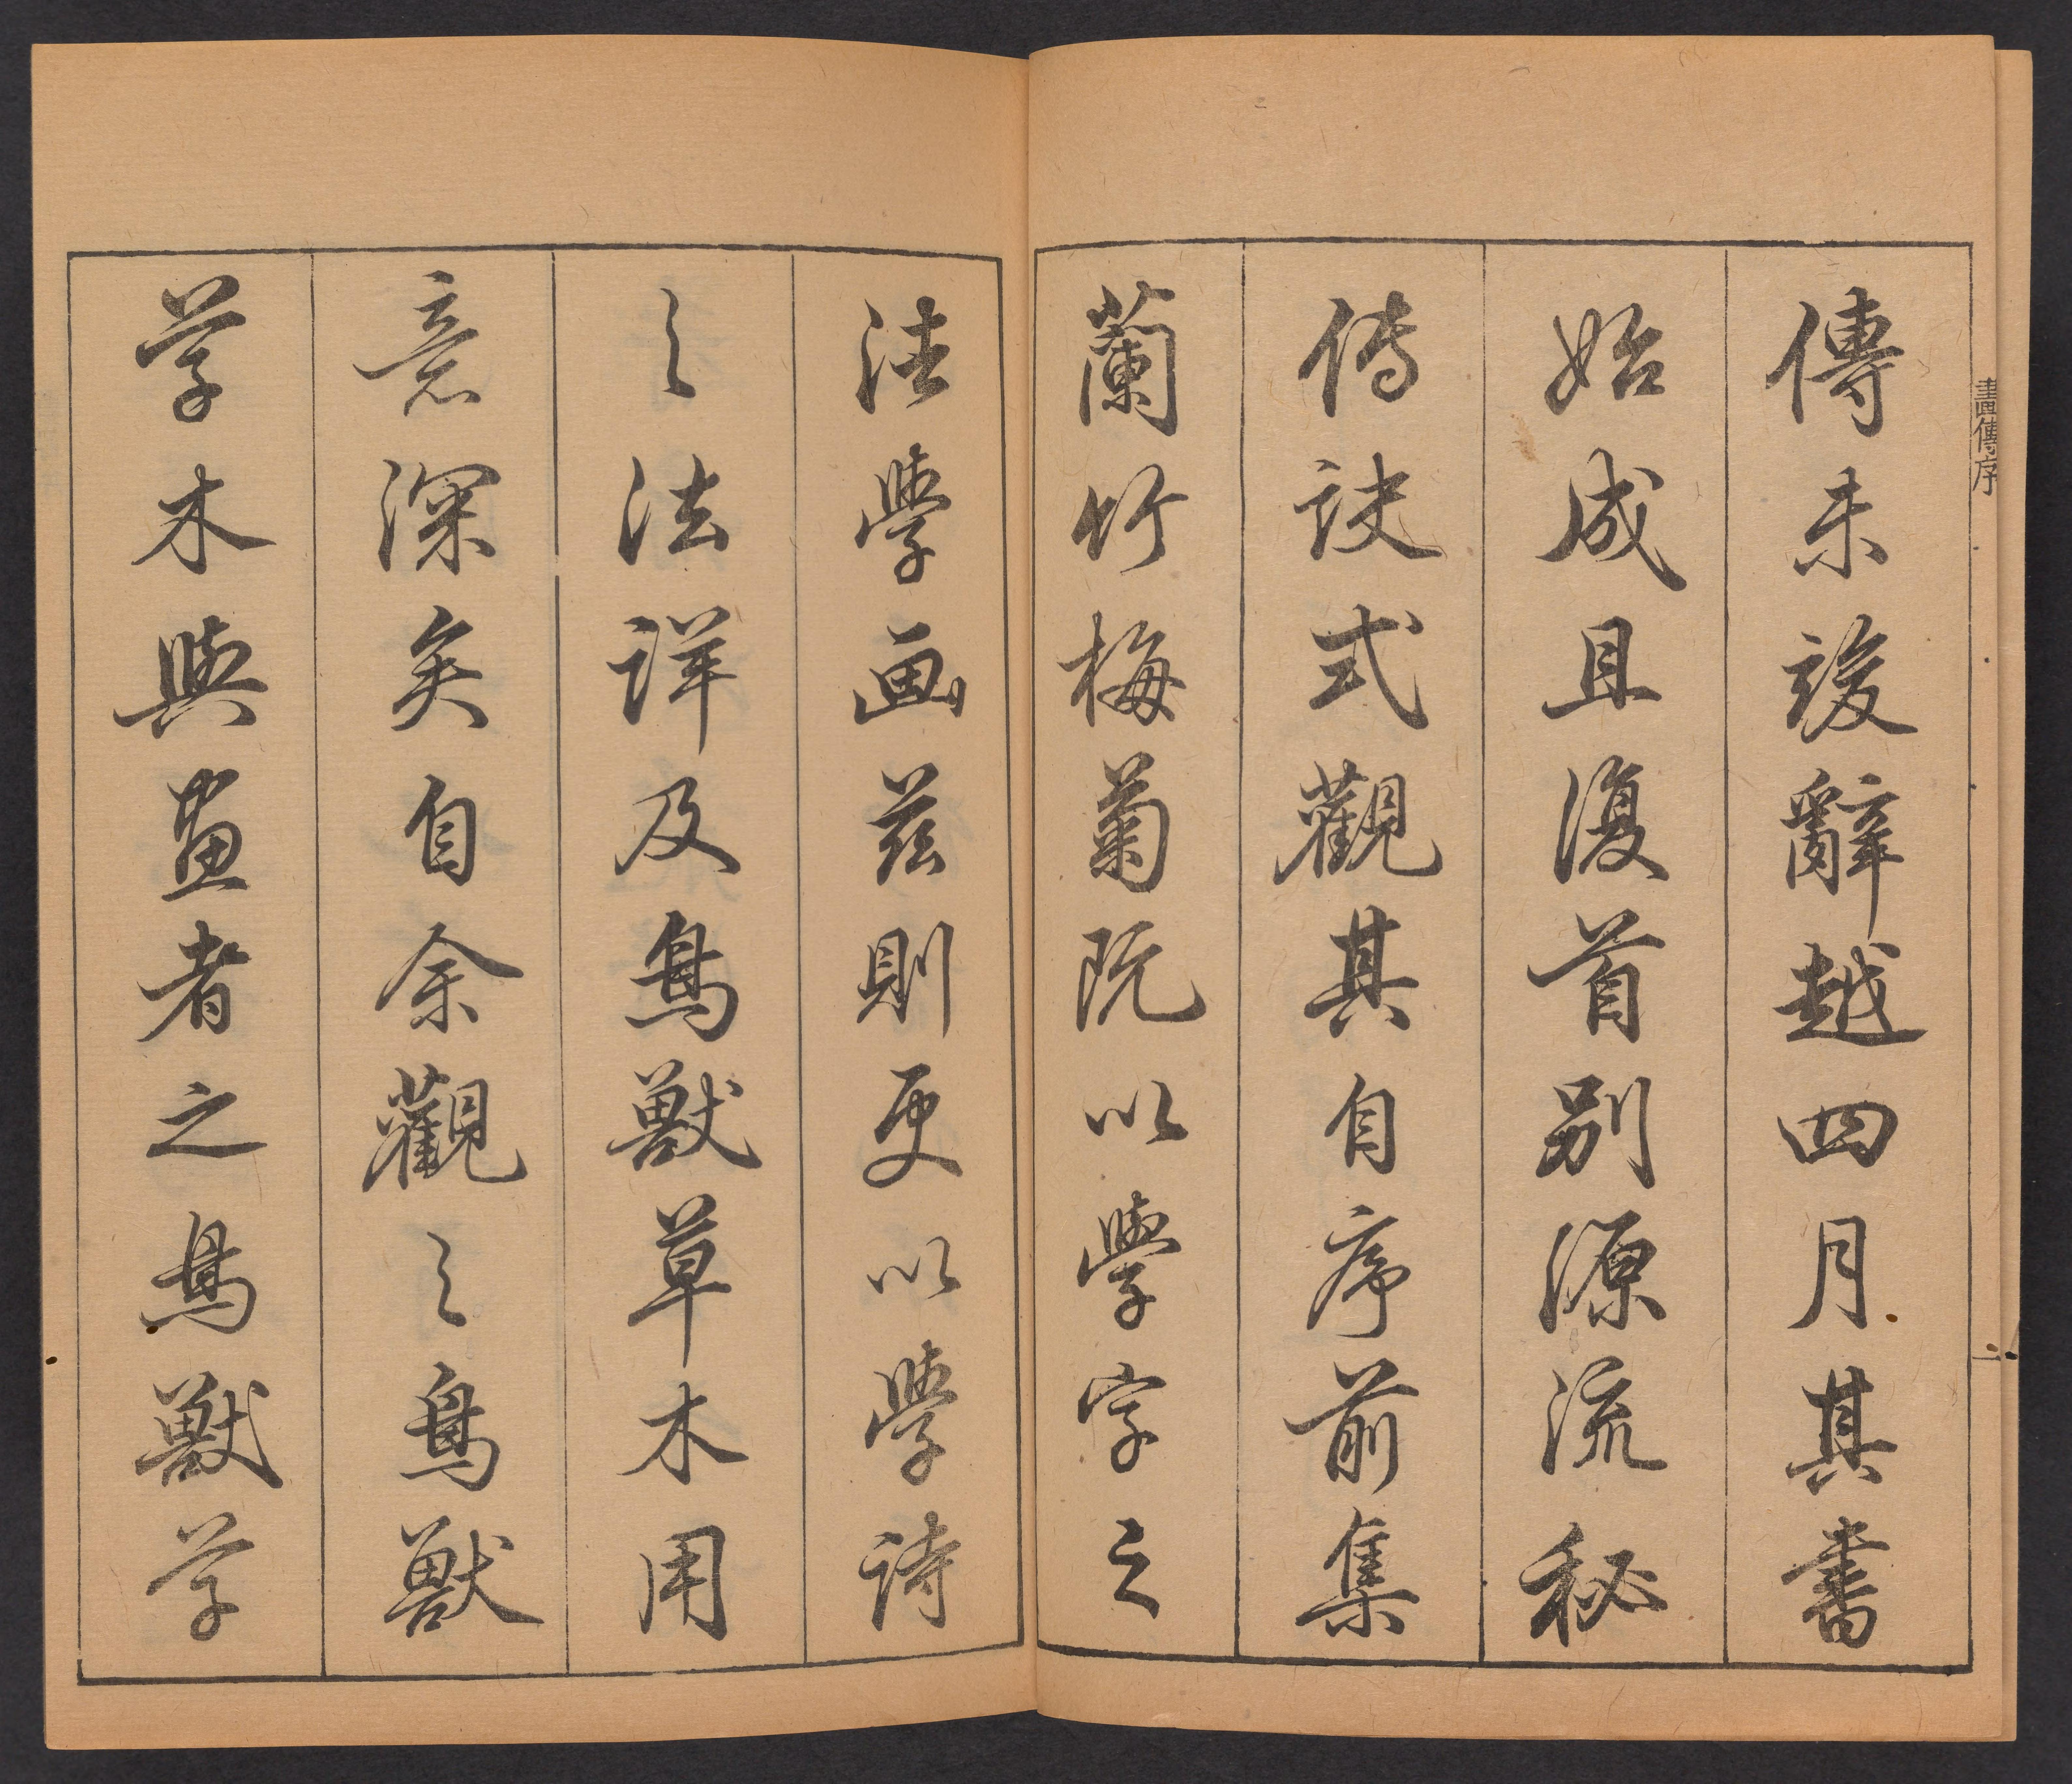 畫傳序
傳未竣辭越四月其書
始成且復首別源流秘
傳訣式觀其自序前集
蘭竹梅菊既以學字之
法學画茲則更以學詩
之法詳及鳥獸草木用
意深矣自余觀之鳥獸
草木與畫者之鳥獸草